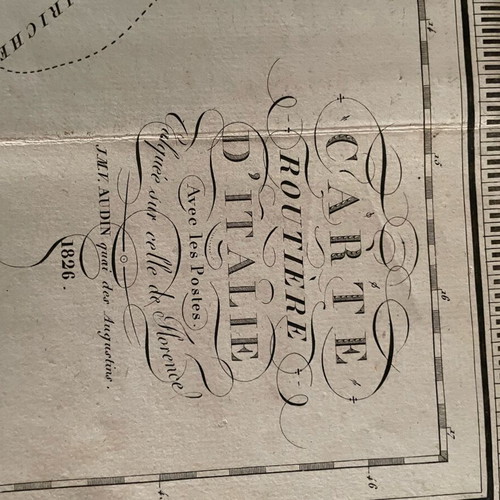 CARTE
ROUTIÈRE
D'ITALIE
Avec les Postes.
Calquée sur celle de Florence
J.M.V. AUDIN quai des Augustins.
1826.
TRICHE